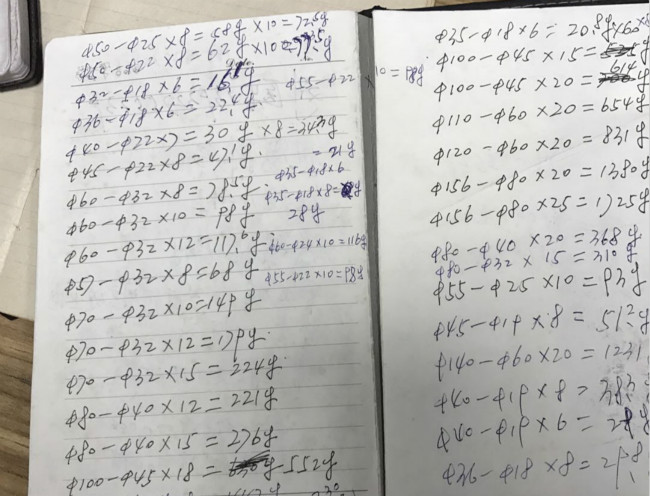 φ50-φ25×8=58g ×10=72.5g
φ50-φ22×8=62g ×10=77.5g
φ32-φ18×6=
φ36-φ18×6=22.4g
φ55-φ22×10=98g
φ40-φ22×7=30g ×8=34.3g
φ45-φ22×8=47.1g
=21g
φ35-φ18×6
φ60-φ32×8=78.5g
φ35-φ18×8=
28g
φ60-φ32×10=98g
φ60-φ32×12=117.6g
φ60-φ24×10=116g
φ57-φ32×8=68g
φ55-φ22×10=98g
φ70-φ32×10=149g
φ70-φ32×12=179g
φ70-φ32×15=224g
φ80-φ40×12=221g
φ80-φ40×15=276g
φ100-φ45×18= 552g
φ35-φ18×6=20.8g
φ100-φ45×15=
614
φ100-φ45×20=
φ110-φ60×20=654g
φ120-φ60×20=831g
φ156-φ80×20=1380g
φ156-φ80×25=1725g
φ80-φ40×20=368g
φ80-φ32×15=310g
φ55-φ25×10=93g
φ45-φ19×8=51.2g
φ140-φ60×20=1231
φ40-φ19×8=38.3
φ40-φ19×6=
φ36-φ18×8=29.8